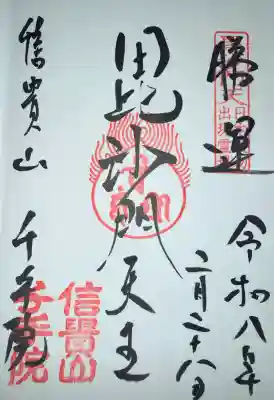 勝運
令和八年
二月二十八日
毘沙門天王
信貴山 千手院
信貴山
千手院